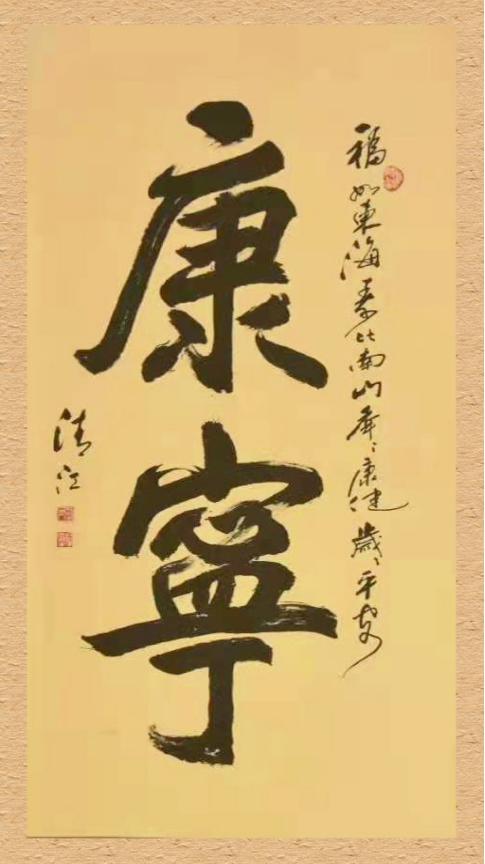 福如东海寿比南山年年康健岁岁平安
康寧
清江